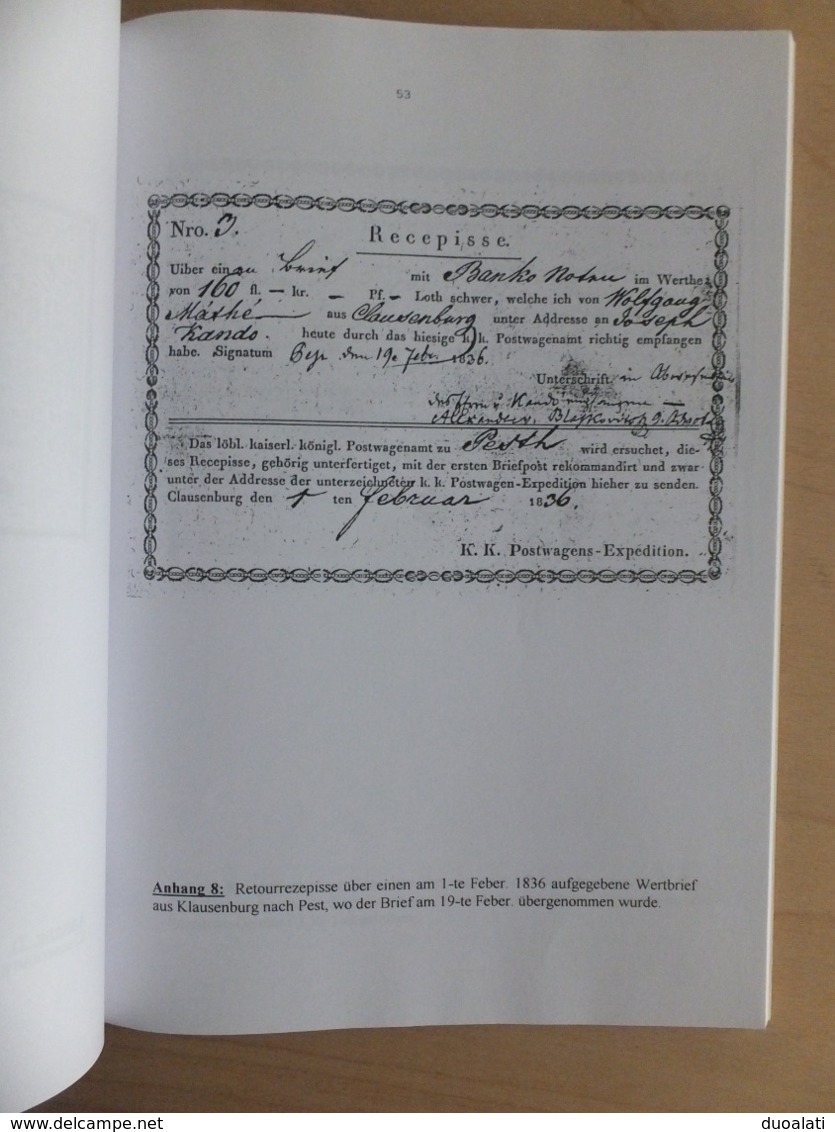 53
Nro. 3.
Recepisse.
Uiber einen Brief mit Banko Noten im Werthe
von 160 fl. — kr. — Pf. — Loth schwer, welche ich von Wolfgang
Máthé aus Clausenburg unter Addresse an Joseph
Kando. heute durch das hiesige k. k. Postwagenamt richtig empfangen
habe. Signatum den 19e Feber 1836.
Unterschrift in
Alexander
Das löbl. kaiserl. königl. Postwagenamt zu Pesth wird ersuchet, die-
ses Recepisse, gehörig unterfertiget, mit der ersten Briefpost rekommandirt und zwar
unter der Addresse der unterzeichneten k. k. Postwagen-Expedition hieher zu senden.
Clausenburg den 1 ten februar 1836.
K. K. Postwagens-Expedition.
Anhang 8: Retourrezepisse über einen am 1-te Feber. 1836 aufgegebene Wertbrief
aus Klausenburg nach Pest, wo der Brief am 19-te Feber. übergenommen wurde.
delcampe.net
duoalati